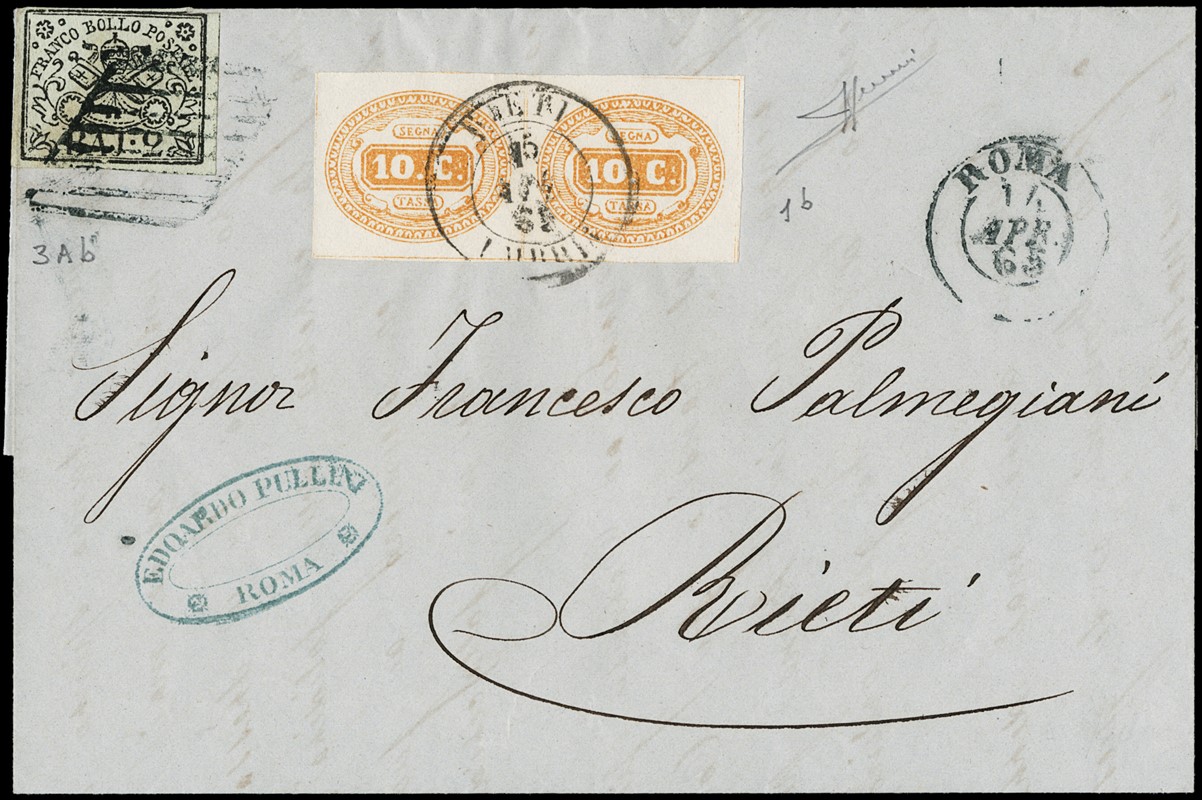 FRANCO BOLLO POSTALE
BAJ: 2
SEGNA
10. C.
TASSA
SEGNA
10. C.
TASSA
RIETI
15
APR
65
ROMA
14
APR
65
1b
3Ab
Signor Francesco Palmegiani
Rieti
EDOARDO PULLINI
ROMA